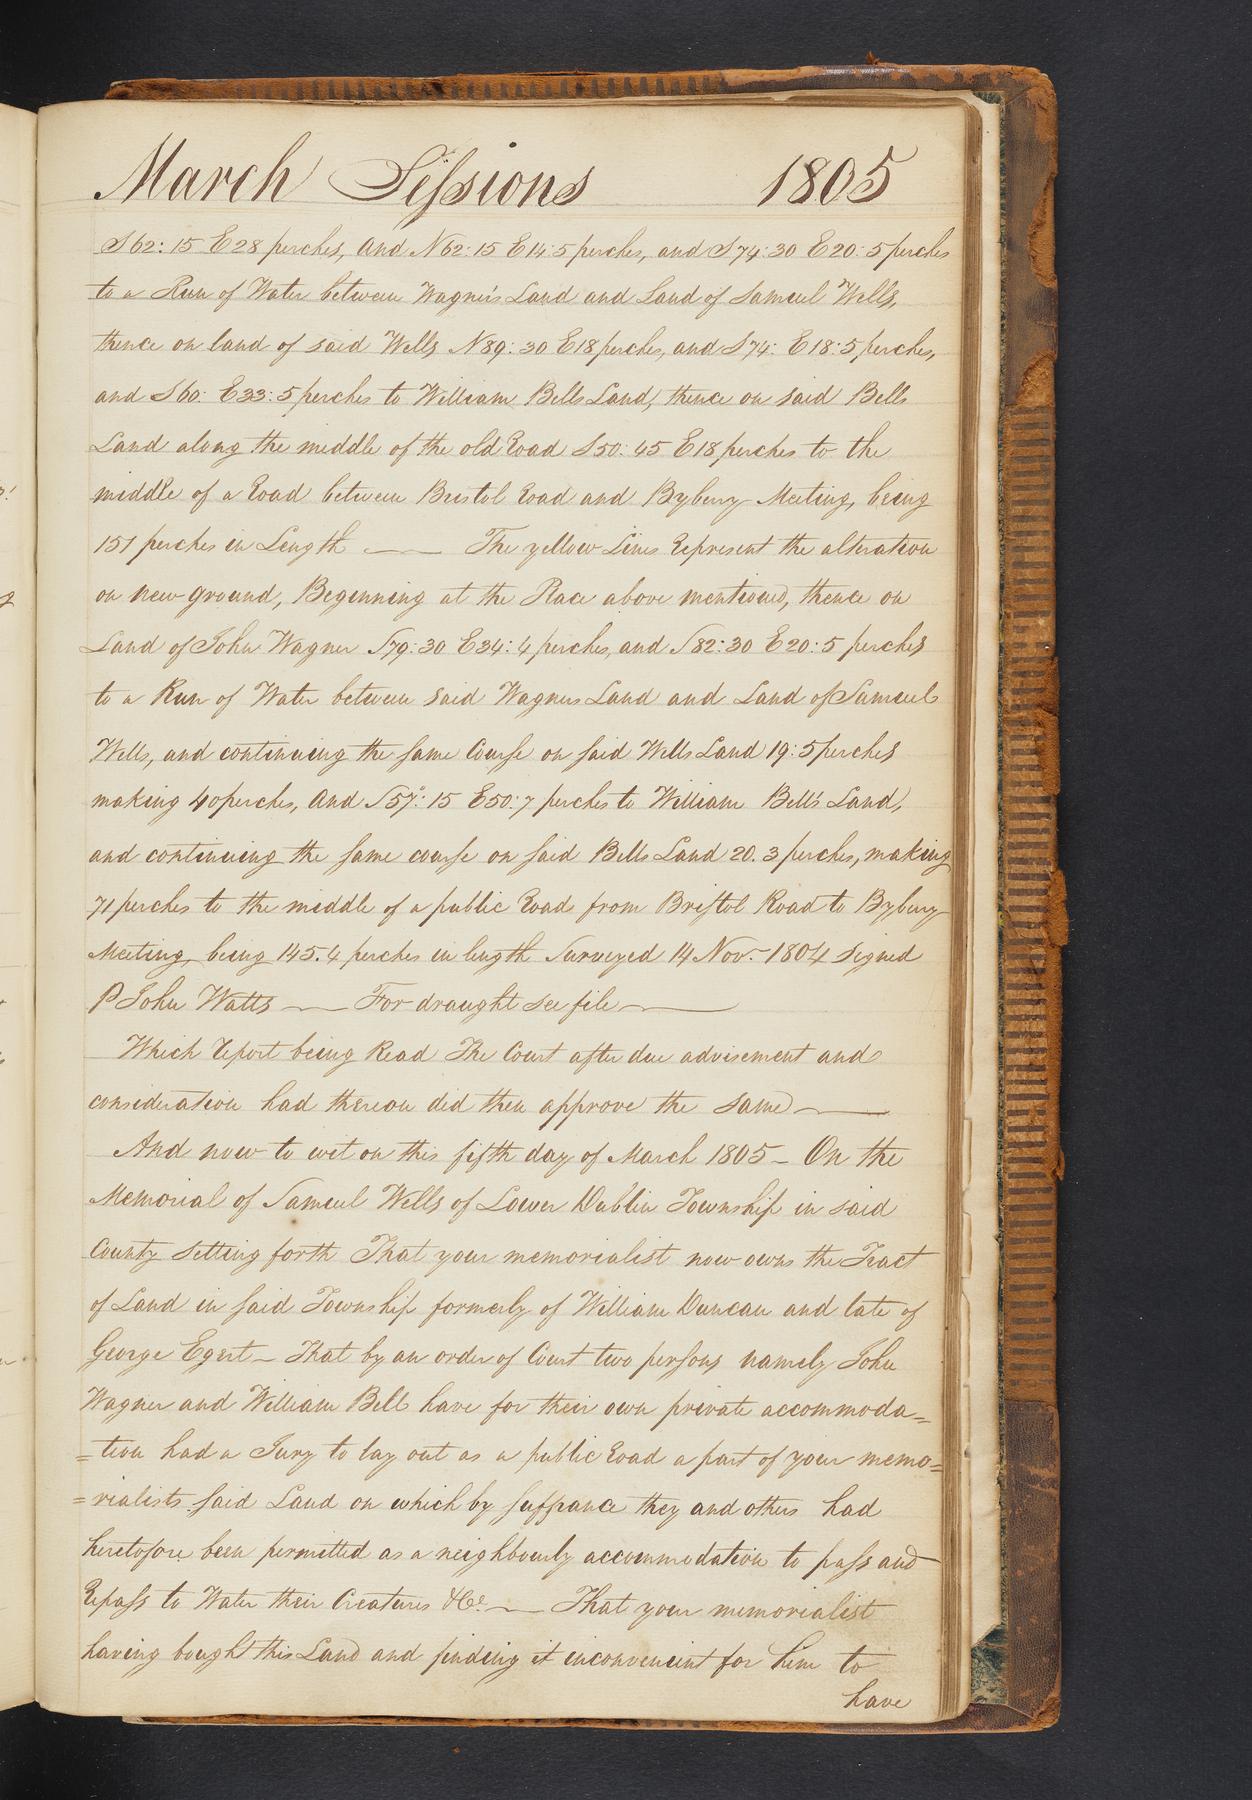 March Sessions 1805
S62:15 E28 perches, And N62:15 E14:5 perches, and S74:30 E20:5 perches
to a Run of Water between Wagner's Land and Land of Samuel Wells,
thence on land of said Wells N89:30 E18 perches, and S74: E18:5 perches,
and S60: E33:5 perches to William Bells Land, thence on said Bells
Land along the middle of the old Road S50:45 E18 perches to the
middle of a Road between Bristol Road and Byberry Meeting, being
151 perches in Length —— The yellow Lines Represent the alteration
on new ground, Beginning at the Race above mentioned, thence on
Land of John Wagner S79:30 E34:4 perches, and S82:30 E20:5 perches
to a Run of Water between said Wagners Land and Land of Samuel
Wells, and continuing the same Course on said Wells Land 19:5 perches
making 40 perches, And S57°:15 E50:7 perches to William Bell's Land,
and continuing the same course on said Bells Land 20.3 perches, making
71 perches to the middle of a public Road from Bristol Road to Byberry
Meeting, being 145.4 perches in length Surveyed 14 Nov. 1804 signed
P John Watts —— For draught see file ——
Which Report being Read The Court after due advisement and
consideration had thereon did then approve the same ——
And now to wit on this fifth day of March 1805 — On the
Memorial of Samuel Wells of Lower Dublin Township in said
County setting forth That your memorialist now owns the Tract
of Land in said Township formerly of William Duncan and late of
George Egert — That by an order of Court two persons namely John
Wagner and William Bell have for their own private accommoda=
=tion had a Jury to lay out as a public Road a part of your memo=
=rialists said Land on which by suffrance they and others had
heretofore been permitted as a neighbourly accommodation to pass and
Repass to Water their Creatures &c. —— That your memorialist
having bought this Land and finding it inconvenient for him to
have